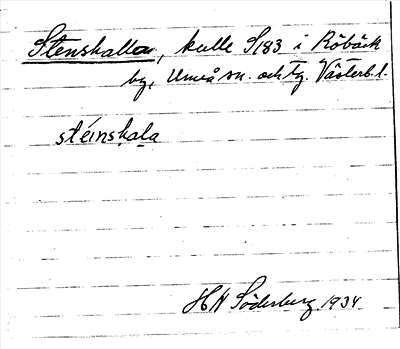 Stenskalla, kulle S183 i Röbäck
by, Umeå sn. och tg. Västerb. l.
stéinskala
HH Söderberg 1934